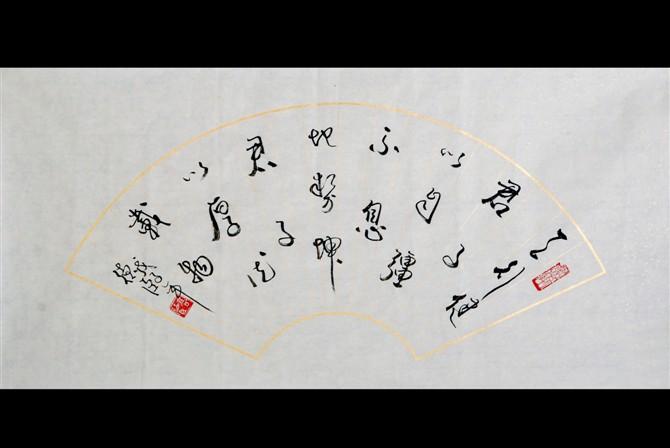 天行健
君子
以自彊
不息
地势坤
君子
以厚德
載物